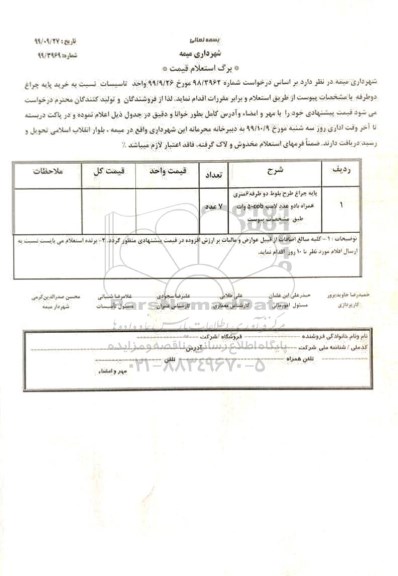 بسمه تعالی
شهرداری میمه
تاریخ: ۹۹/۰۹/۲۷
شماره: ۹۹/۳۹۶۹
* برگ استعلام قیمت *
شهرداری میمه در نظر دارد بر اساس درخواست شماره ۹۸/۳۹۶۲ مورخ ۹۹/۹/۲۶ واحد تاسیسات نسبت به خرید پایه چراغ
دوطرفه با مشخصات پیوست از طریق استعلام و برابر مقررات اقدام نماید. لذا از فروشندگان و تولید کنندگان محترم درخواست
می شود قیمت پیشنهادی خود را با مهر و امضاء وآدرس کامل بطور خوانا و دقیق در جدول ذیل اعلام نموده و در پاکت دربسته
تا آخر وقت اداری روز سه شنبه مورخ ۹۹/۱۰/۹ به دبیرخانه محرمانه این شهرداری واقع در میمه ، بلوار انقلاب اسلامی تحویل و
رسید دریافت دارند. ضمناً فرمهای استعلام مخدوش و لاک گرفته، فاقد اعتبار لازم میباشد
ردیف شرح تعداد قیمت واحد قیمت کل ملاحظات
پایه چراغ طرح بلوط دو طرفه ۶متری
۱ همراه بادو عدد لامپ ۵۰cob وات ۷ عدد
طبق مشخصات پیوست
توضیحات : ۱- کلیه مبالغ اضافات از قبیل عوارض و مالیات بر ارزش افزوده در قیمت پیشنهادی منظور گردد. ۲- برنده استعلام می بایست نسبت به
ارسال اقلام مورد نظر تا ۱۰ روز اقدام نماید.
حمیدرضا جاویدپور حیدرعلی ابن علیان علی طلایی علیرضا سجودی غلامرضا شیبانی محسن صدرالدین کرمی
کارپردازی مسئول امورمالی کارشناس معماری کارشناس عمران مسئول تاسیسات شهردار میمه
نام ونام خانوادگی فروشنده فروشگاه /شرکت
کدملی / شناسه ملی شرکت آدرس
تلفن همراه تلفن
مهر و امضاء
ParsNamadData
پایگاه اطلاع رسانی مناقصه و مزایده
۰۲۱-۸۸۳۴۹۶۷۰-۵